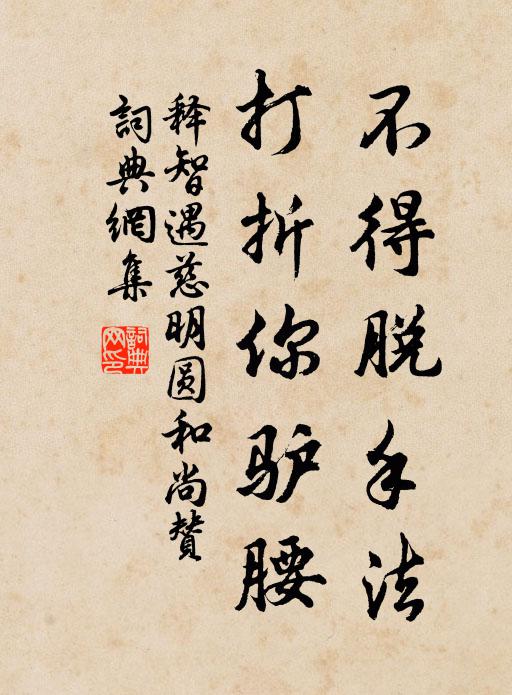 不得脱手法
打折你驴腰
释智遇慈明圆和尚賛
詞典網集
詞典網印